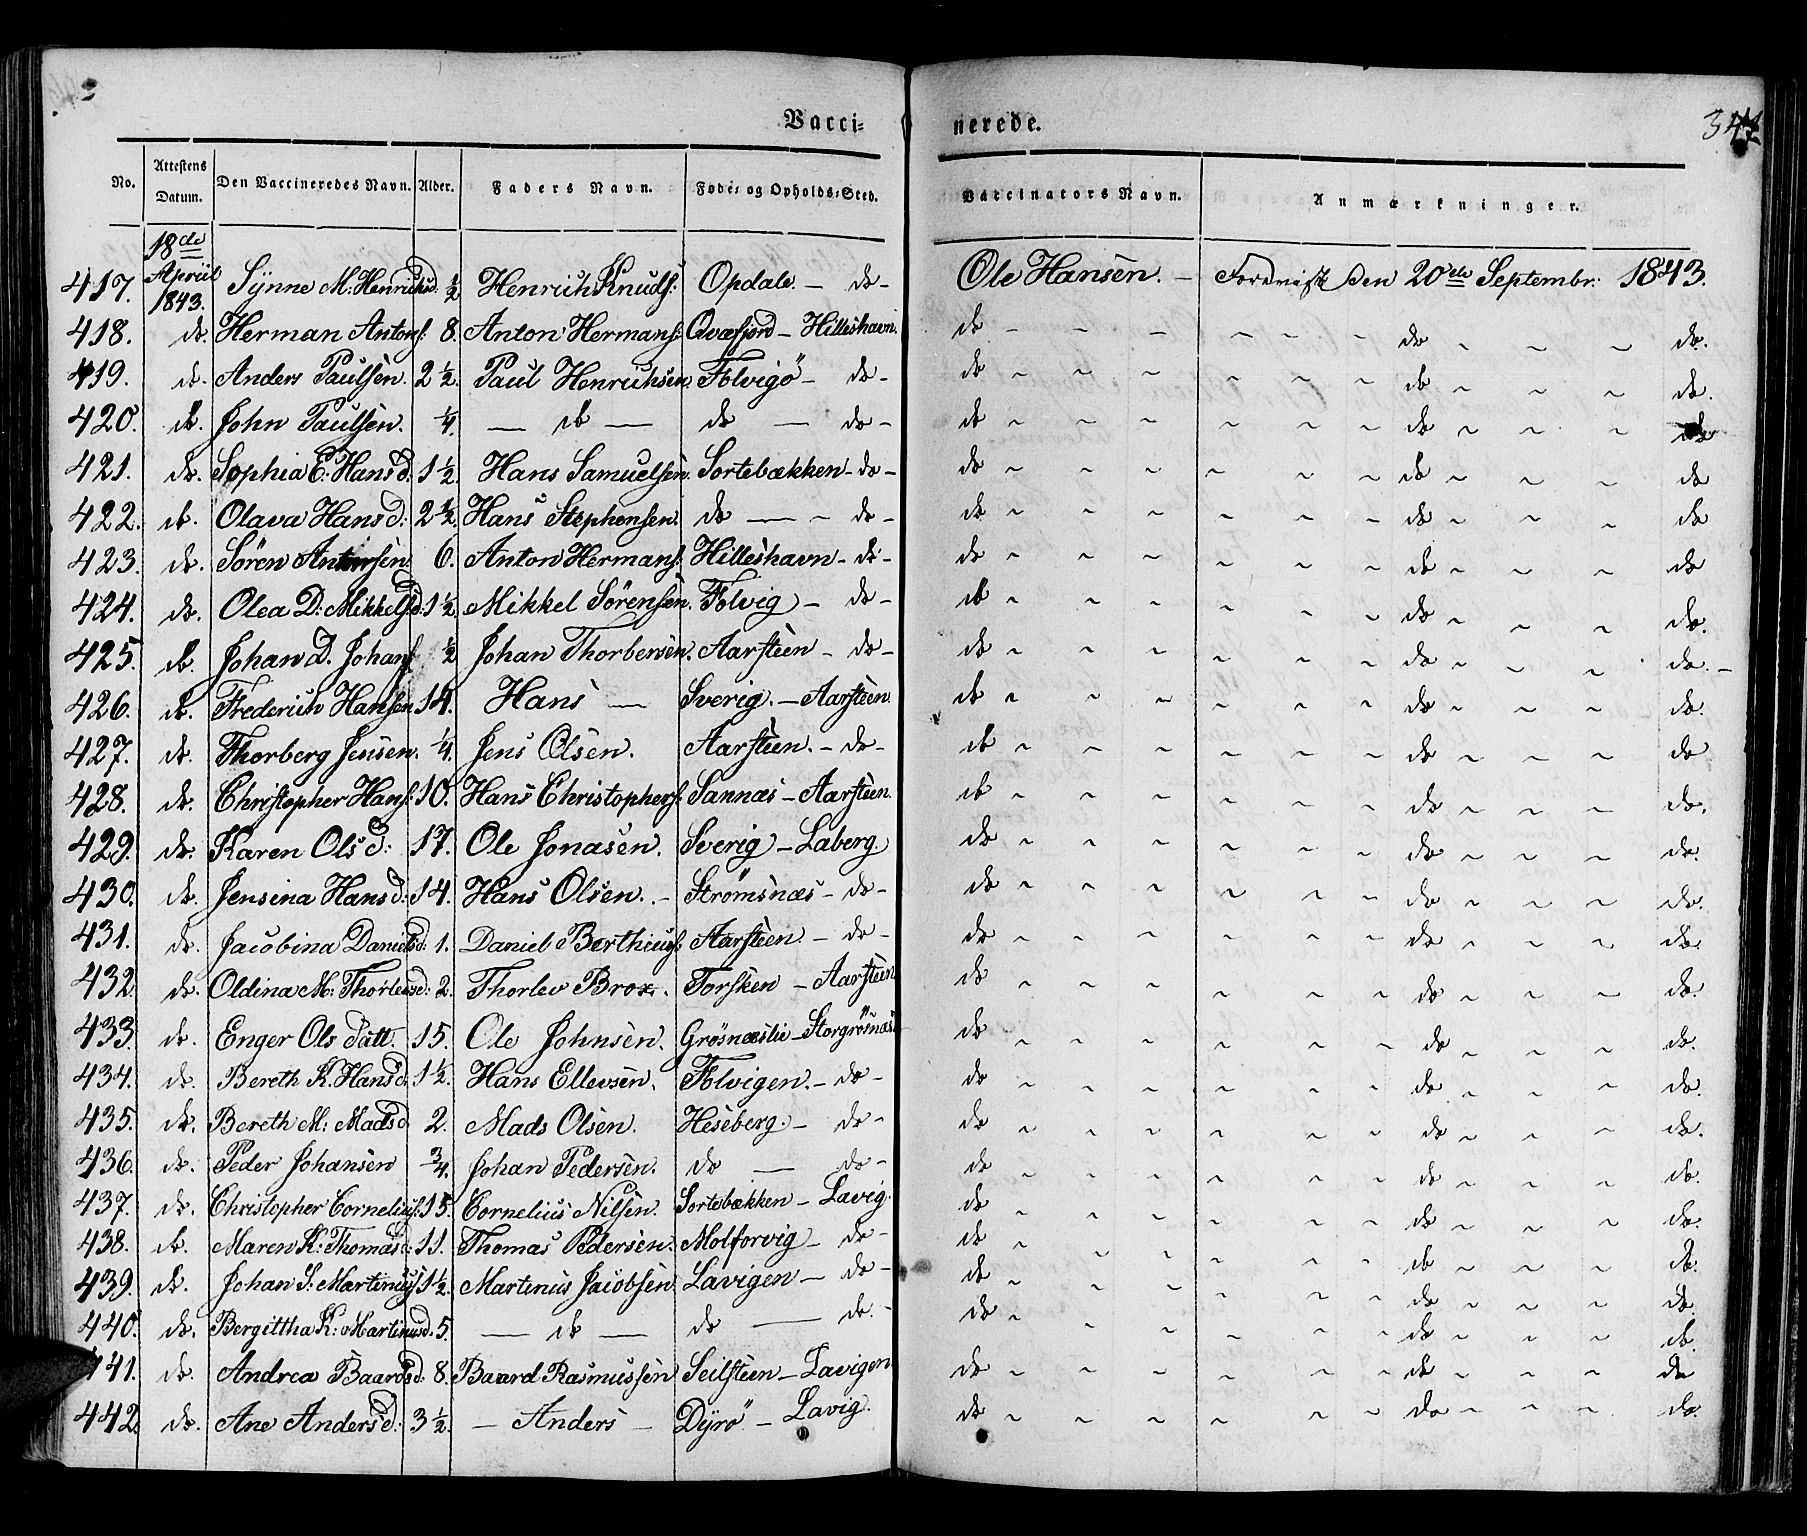 Vacci= nerede. 
No. Attestens Datum. Den Vaccineredes Navn. Alder. Faders Navn. Føde= og Opholds=Sted. Vaccinators Navn. Anmærkninger.
417. 18de April 1843. Synne M: Henrichsd: ½ Henrich Knuds: Opdale. – do – Ole Hansen. – den 20de Septembr: 1843.
418. do. Herman Antons: 8. Anton Hermans: Qvæfjord – Hilleshavn. do – ~ ~ ~ ~ ~ do ~ ~ ~ do.
419. do. Anders Paulsen. 2½. Paul Henrichsen. Folvigö – do – do ~ ~ ~ ~ ~ ~ do ~ ~ ~ do.
420. do. John Paulsen. ¼. — do — do — do – do ~ ~ ~ ~ ~ ~ do ~ ~ ~ do
421. do. Sophia C: Hansd: 1½. Hans Samuelsen. Sortebækken – do – do ~ ~ ~ ~ ~ ~ do ~ ~ ~ do
422. do. Olava Hansd: 2½. Hans Stephensen. do — ~ do – do ~ ~ ~ ~ ~ ~ do ~ ~ ~ do
423. do. Sören Antonsen 6. Anton Hermans: Hilleshavn – do – do ~ ~ ~ ~ ~ ~ do ~ ~ ~ do
424. do. Olea D: Mikkelsd: 1½ Mikkel Sörensen. Folvig – do – do ~ ~ ~ ~ ~ ~ do ~ ~ ~ do.
425. do. Johan D. Johans ½ Johan Thorbersen. Aarsteen – do – do ~ ~ ~ ~ ~ ~ do ~ ~ ~ do. –
426. do. Frederich Hansen 14. Hans — Sverig. – Aarsteen. do ~ ~ ~ ~ ~ ~ do ~ ~ ~ do.
427. do. Thorberg Jensen. ¼. Jens Olsen. Aarsteen. – do – do ~ ~ ~ ~ ~ ~ do ~ ~ ~ do
428. do. Christopher Hans: 10. Hans Christophers: Sannæs – Aarsteen. do ~ ~ ~ ~ ~ ~ do ~ ~ ~ do.
429. do. Karen Olsd: 17. Ole Jonasen. Sverig – Laberg. do ~ ~ ~ ~ ~ ~ do ~ ~ ~ do.
430. do. Jensina Hansd: 14. Hans Olsen. – Strömsnæs – do – do ~ ~ ~ ~ ~ ~ do ~ ~ ~ do.
431. do. Jacobina Danielsd: 1. Daniel Berthius: Aarsteen. – do – do ~ ~ ~ ~ ~ ~ do ~ ~ ~ do.
432. do. Oldina M: Thorlevsd: 2. Thorlev Brox. Torsken – Aarsteen do ~ ~ ~ ~ ~ ~ do ~ ~ ~ do.
433. do. Enger Ols Datt. 15. Ole Johnsen. Grösnæslie – Storgrösnæs do ~ ~ ~ ~ ~ ~ do ~ ~ ~ do.
434. do. Bereth K. Hansd. 1½. Hans Ellevsen. Folvigen. – do – do ~ ~ ~ ~ ~ ~ do ~ ~ ~ do.
435. do. Bereth M: Madsd 2. Mads Olsen. Heseberg. – do – do ~ ~ ~ ~ ~ ~ do ~ ~ ~ do.
436. do. Peder Johansen ¾. Johan Pedersen. do — do – do ~ ~ ~ ~ ~ ~ do ~ ~ ~ do.
437. do. Christopher Cornelius: 15. Cornelius Nilsen. Sortebækken – Lavig. do ~ ~ ~ ~ ~ ~ do ~ ~ ~ do.
438. do. Maren K: Thomasd: 11. Thomas Pedersen. Molforvig – do – do ~ ~ ~ ~ ~ ~ do ~ ~ ~ do.
439. do. Johan S. Martinus: 1½. Martinus Jacobsen Lavigen – do – do ~ ~ ~ ~ ~ ~ do ~ ~ ~ do.
440. do. Bergittha K: Martinusd: 5. — do — do — do. – do ~ ~ ~ ~ ~ ~ do ~ ~ ~ do
441. do. Andrea Baardsd: 8. Baard Rasmussen Seilsteen – Lavigen do ~ ~ ~ ~ ~ ~ do ~ ~ ~ do
442. do. Ane Andersd: 3½. – Anders – Dÿrö – Lavig. do ~ ~ ~ ~ ~ ~ do ~ ~ ~ do.